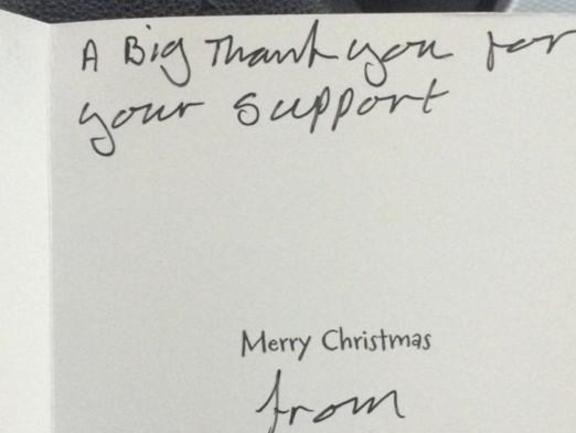 A Big Thank you for
your support
Merry Christmas
from